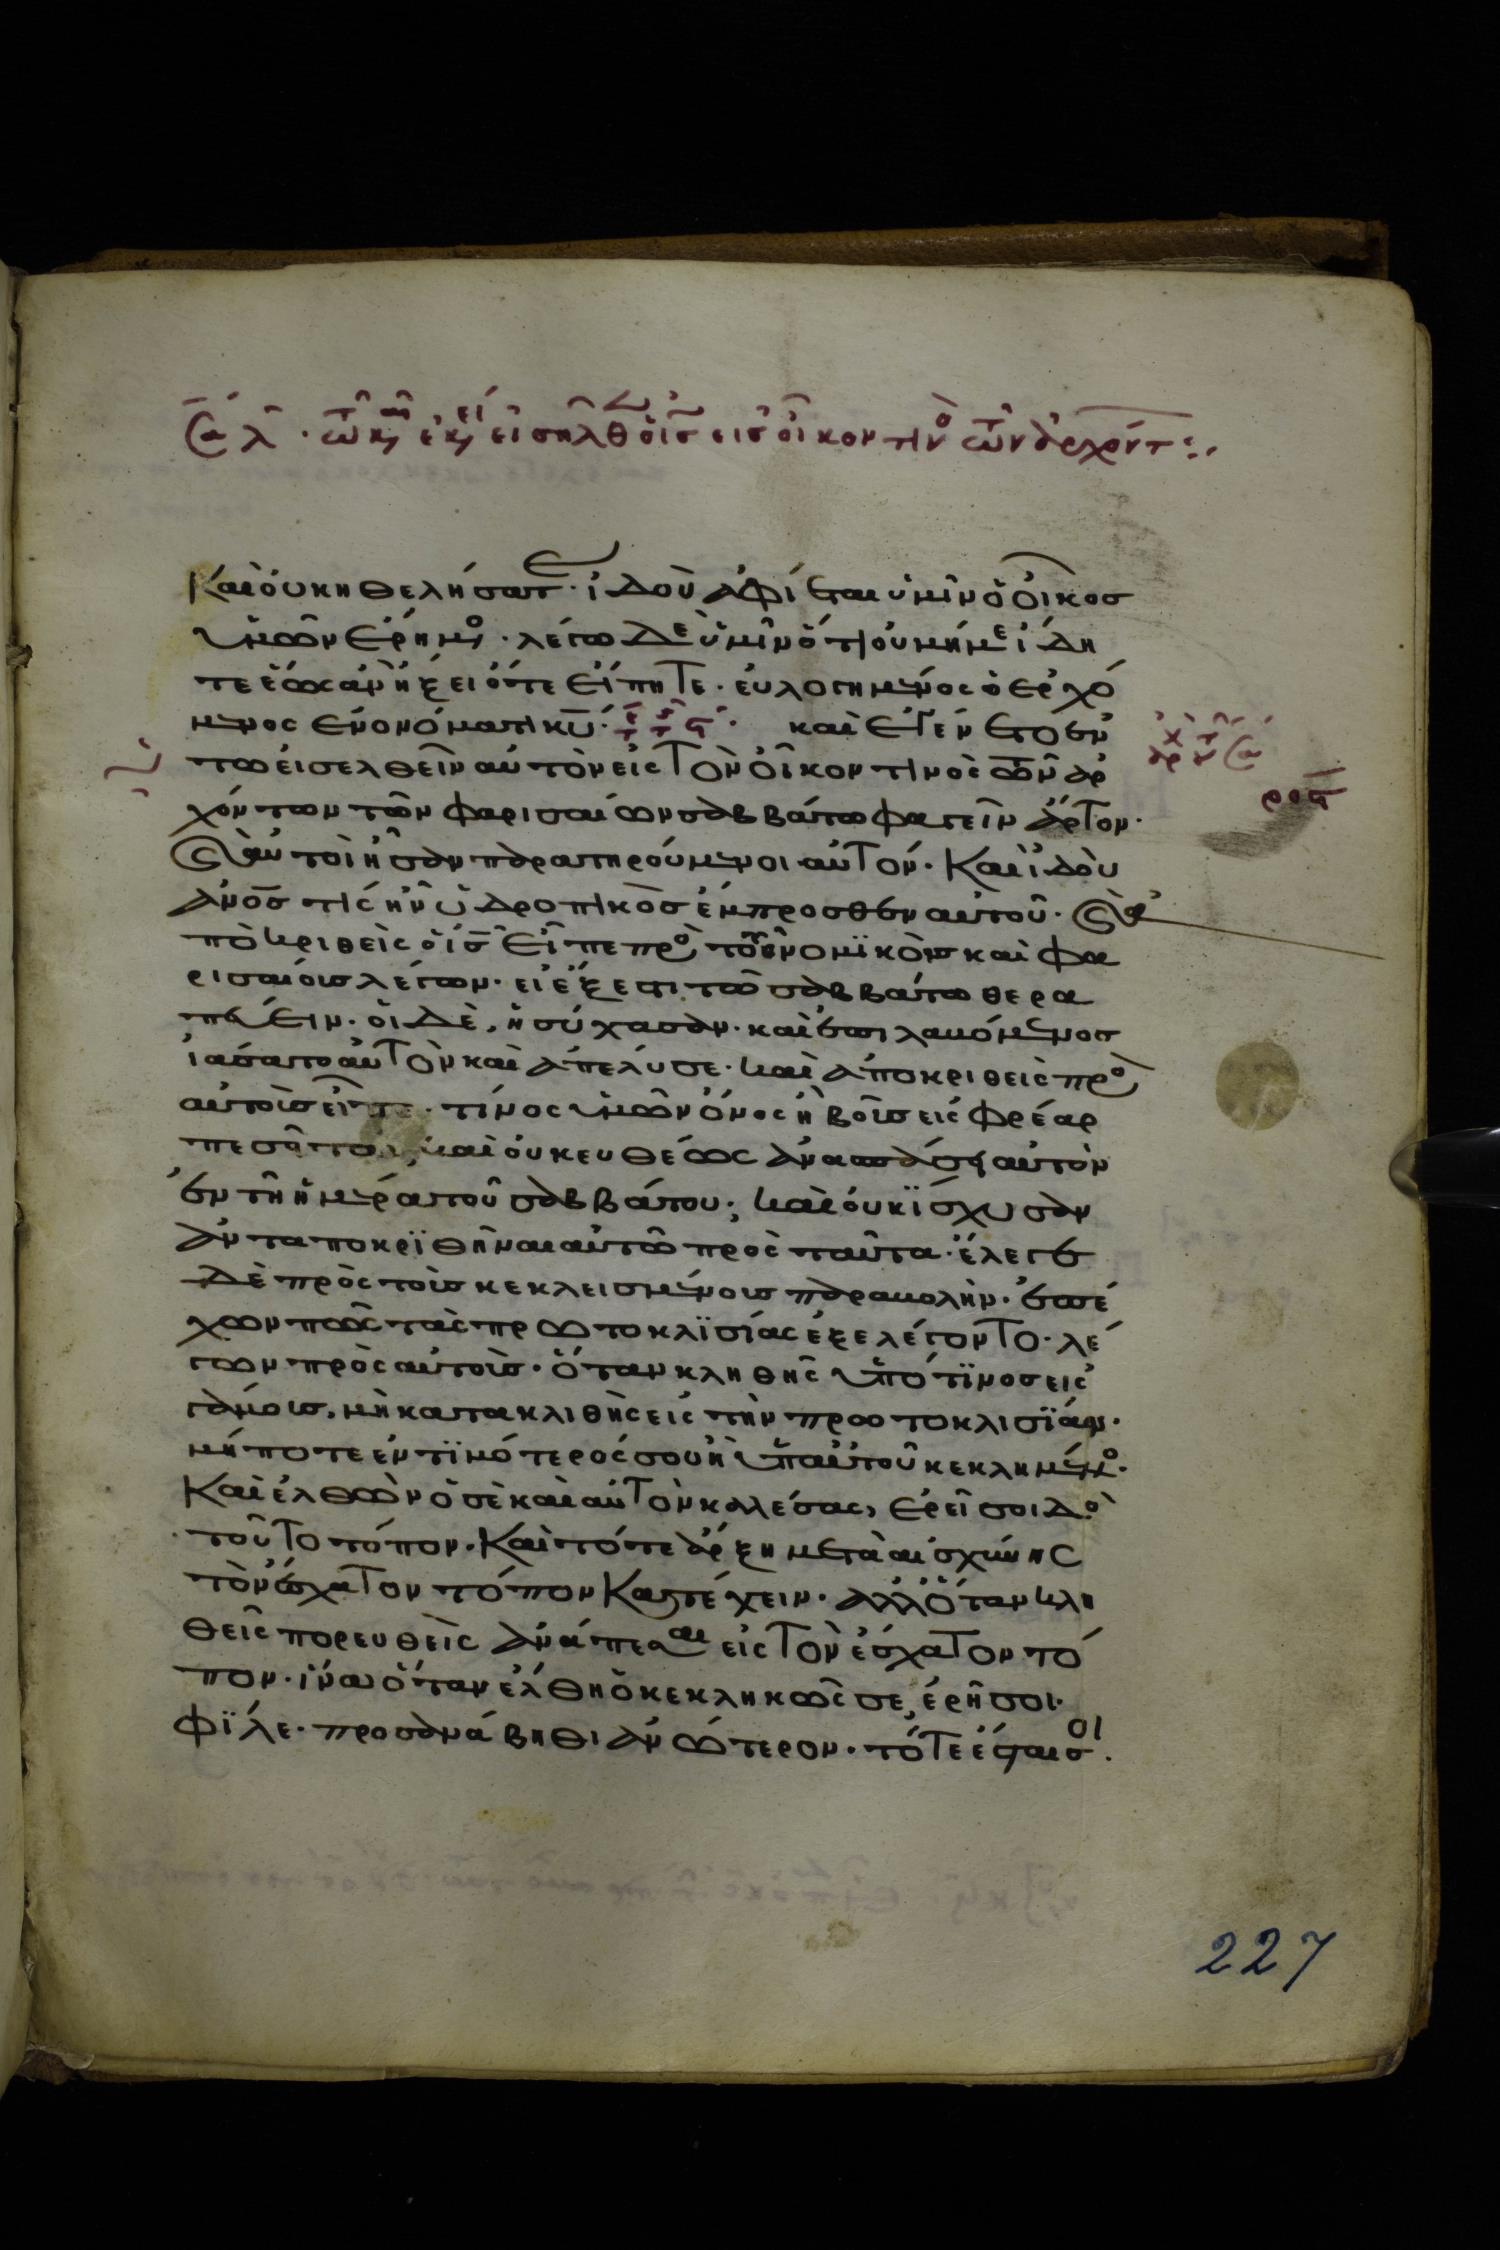 τῶ καιρῶ ἐκείνω εἰσῆλθεν ὁ ι̅ς̅ εἰς οἶκον τινὸς τῶν ἀρχόντ
Καὶ οὐκ ἠθελήσατε· ἰδοὺ ἀφίεται ὑμῖν ὁ οἶκος
ὑμῶν ἔρημος· λέγω δὲ ὑμῖν ὅτι οὐ μή με ἴδη
τε ἕως ἂν ἥξει ὅτε εἴπητε· εὐλογημένος ὁ ἐρχό
μενος ἐν ὀνόματι κ̅υ̅· καὶ ἐγένετο ἐν
τῶ εἰσελθεῖν αὐτὸν εἰς τὸν οἶκον τινὸς τῶν ἀρ
χόντων τῶν φαρισαίων σαββάτω φαγεῖν ἄρτον·
καὶ αὐτοὶ ἦσαν παρατηρούμενοι αὐτόν· Καὶ ἰδοὺ
α̅ν̅ο̅ς̅ τίς ἦν ὑδροπικὸς ἔμπροσθεν αὐτοῦ· καὶ ἀ
ποκριθεὶς ὁ ι̅ς̅ εἶπε πρὸς τοὺς νομϊκοὺς καὶ φα
ρισαίους λέγων· εἰ ἔξεστι τῶ σαββάτω θερα
πεύειν· οἱ δὲ, ἡσύχασαν· καὶ ἐπιλαβόμενος
ἰάσατο αὐτὸν καὶ ἀπέλυσε· καὶ ἀποκριθεὶς πρὸς
αὐτοὺς εἶπε· τίνος ὑμῶν ὄνος ἢ βοῦς εἰς φρέαρ
πεσεῖται, καὶ οὐκ ευθέως ἀνασπάσει αὐτὸν
ἐν τῆ ἡμέρα τοῦ σαββάτου; καὶ οὐκ ϊσχυσαν
ἀνταποκρϊθῆναι αὐτῶ πρὸς ταῦτα· ἔλεγε
δὲ πρὸς τοὺς κεκλεισμένους παραβολὴν· ἐπέ
χων πῶς τὰς πρωτοκλϊσίας ἐξελέγοντο· λέ
γων πρὸς αὐτοὺς· ὅταν κληθῆς ὑπό τϊνος εἰς
γάμους, μὴ κατακλιθῆς εἰς τὴν πρωτοκλισϊάν·
μήποτε ἐντϊμότερός σου ἢ ὑπ' αὐτοῦ κεκλημένος·
Καὶ ἐλθὼν ὁ σὲ καὶ αὐτὸν καλέσας, ἐρεῖ σοι δὸς
τούτο τόπον· Καὶ τότε ἄρξη μετὰ αἰσχύνης
τὸν ἔσχατον τόπον Κατέχειν· ἀλλ' ὅταν κλη
θεῖς πορευθεὶς ἀνάπεσαι εἰς τὸν ἔσχατον τό
πον· ἵνα ὅταν ἔλθη ὁ κεκληκῶς σε, ἐρῆ σοι·
φϊλε· προσανάβηθι ἀνώτερον· τότε ἔσται σοι·
227